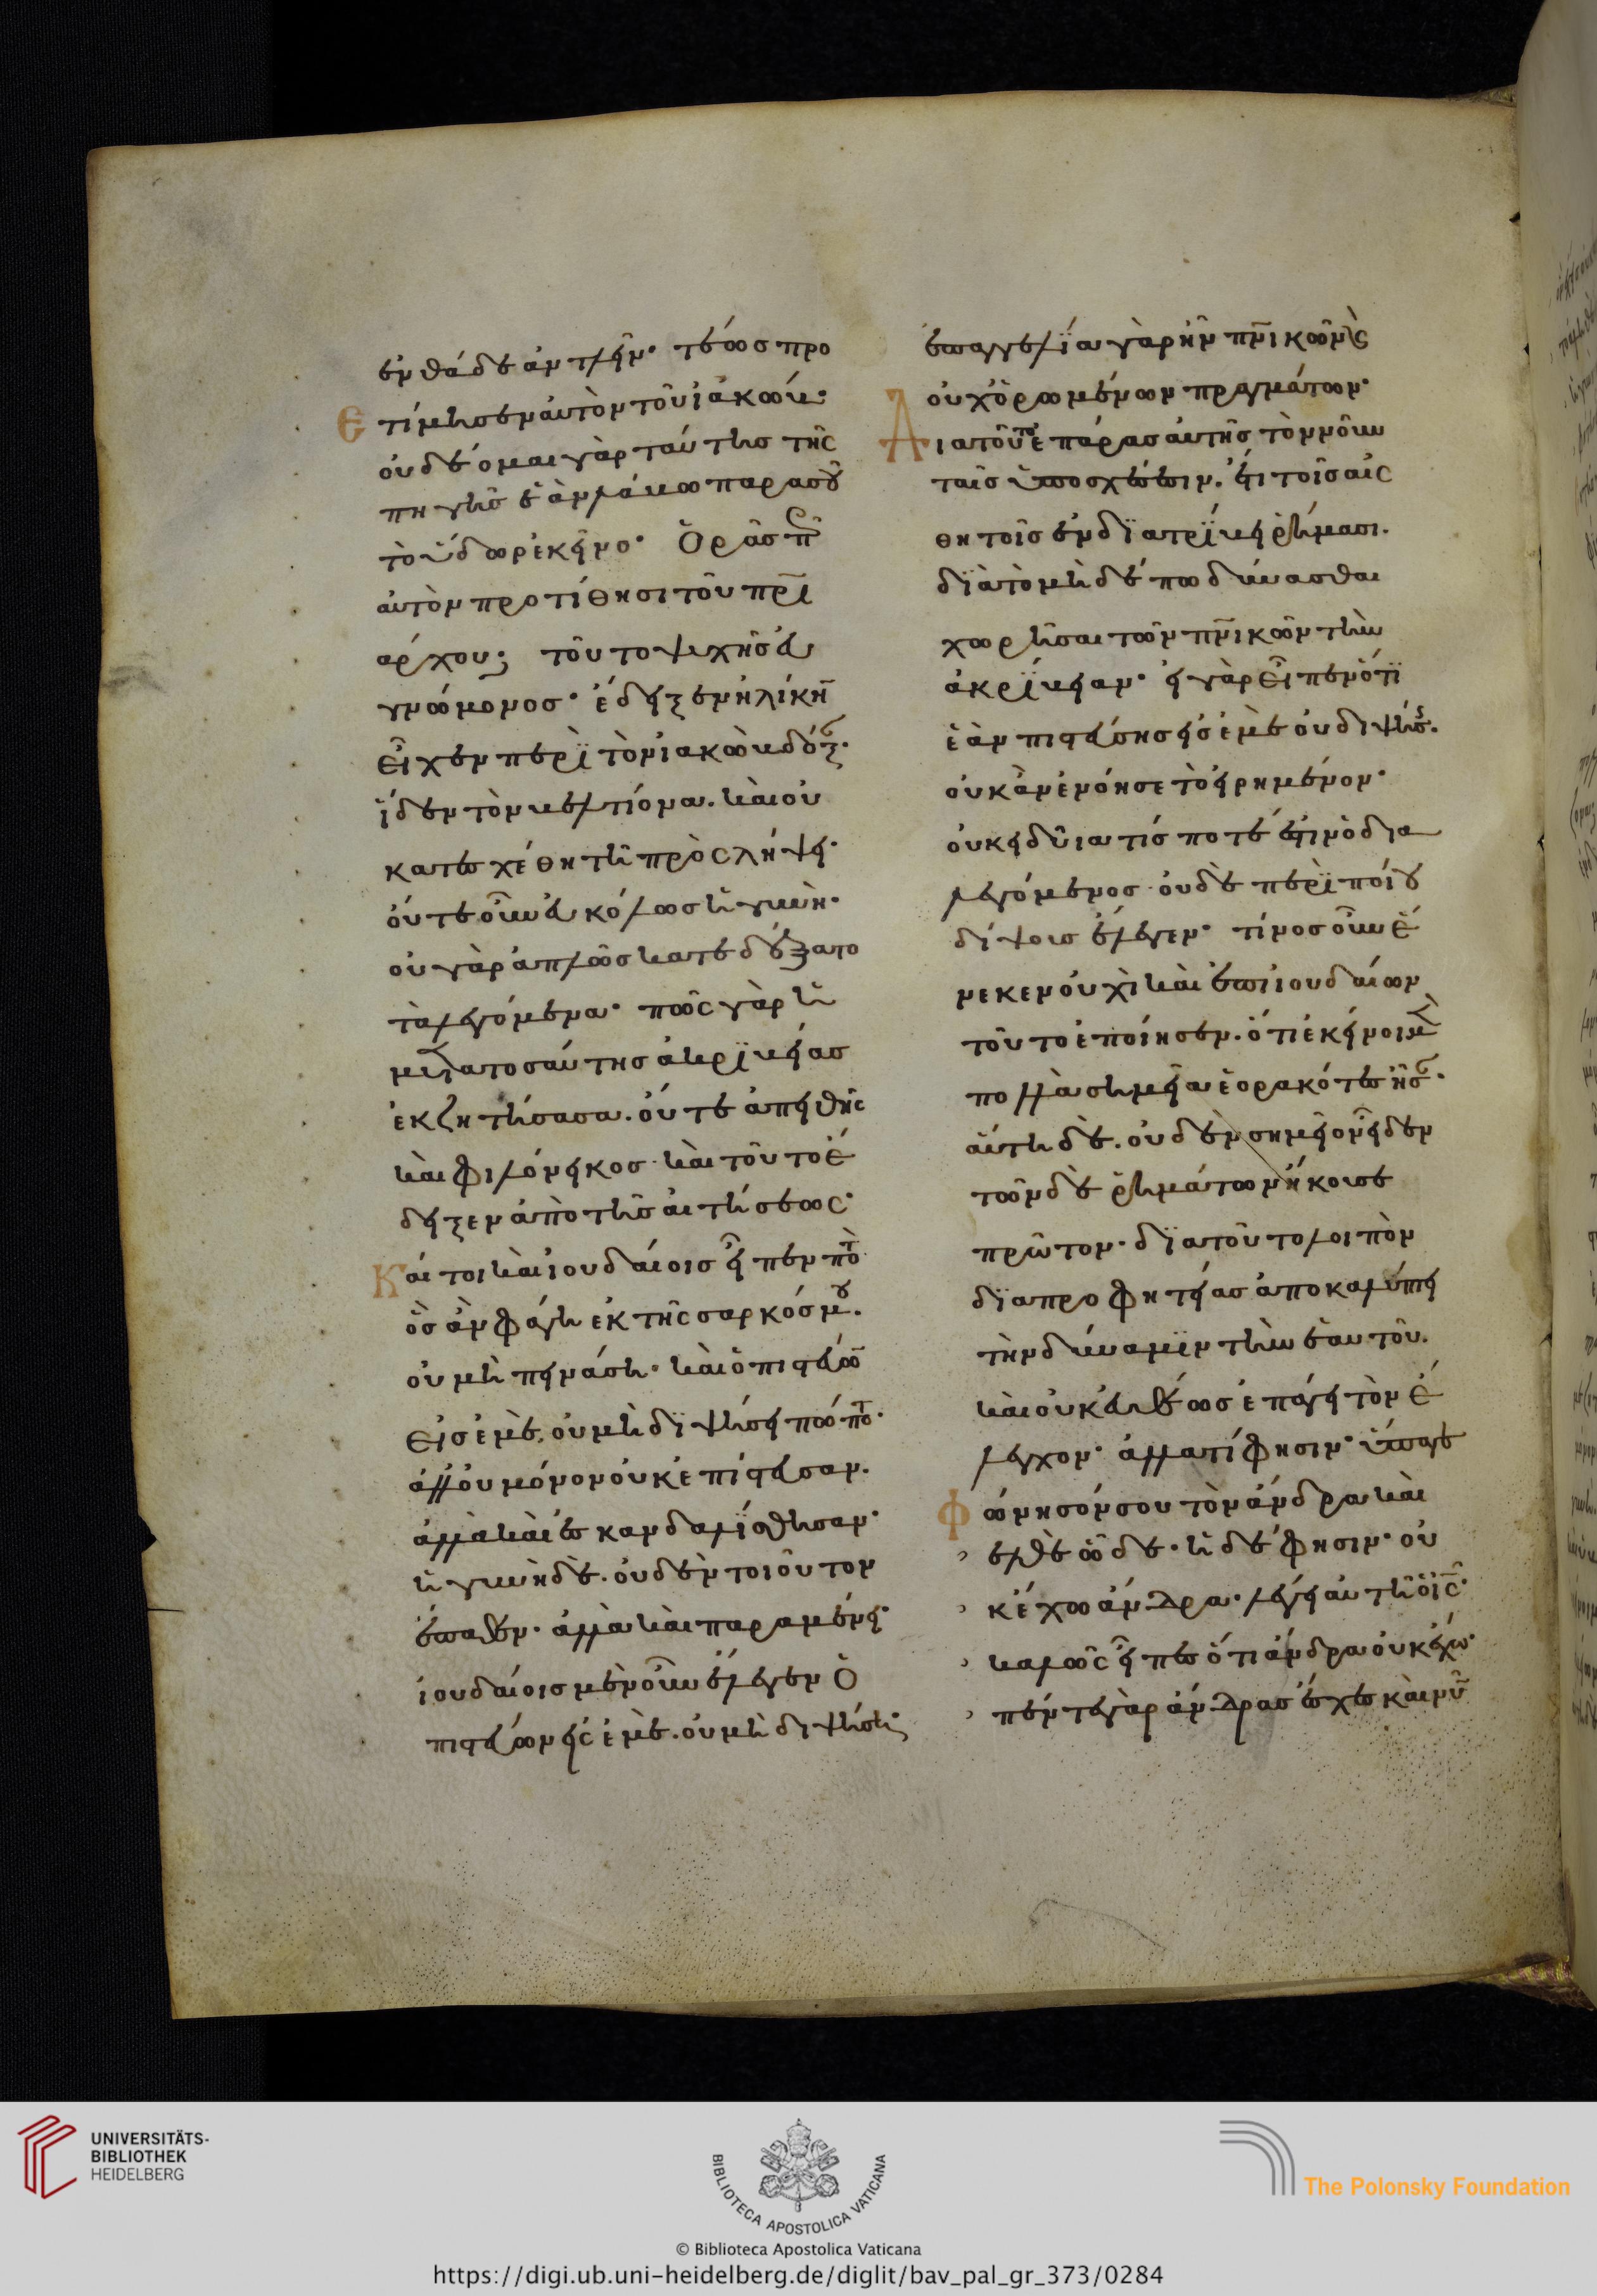 ἐνθάδε ἀντλεῖν· τέως προ
ετίμησεν αὐτὸν τοῦ ἰακώβ·
οὐ δέομαι γὰρ ταύτης τῆς
πηγῆς ἐὰν λάβω παρὰ σοῦ
τὸ ὕδωρ ἐκεῖνο· Ὁρᾶς πῶς
αὐτὸν προτίθησι τοῦ πρι
άρχου; τοῦτο ψυχῆς εὐ
γνώμονος· ἔδειξεν ἡλίκην
εἶχεν περὶ τὸν ἰακὼβ δόξαν·
ἴδεν τὸν βελτίονα. καὶ οὐ
κατεσχέθη τῆ προσλήψει·
οὔτε οὖν εὐκόλως ἡ γυνὴ·
οὐ γὰρ ἁπλῶς κατεδέξατο
τὰ λεγόμενα· πῶς γὰρ ἡ
μετὰ τοσαύτης ἀκριβείας
ἐκζητήσασα. οὔτε ἀπειθὴς
καὶ φιλόνεικος· καὶ τοῦτο ἔ
δειξεν ἀπὸ τῆς αἰτήσεως·
Καίτοι καὶ ἰουδαίοις εἶπεν ποτὲ·
ὃς ἂν φάγη ἐκ τῆς σαρκός μου.
οὐ μὴ πεινάση· καὶ ὁ πιστεύων
εἰς ἐμὲ. οὐ μὴ διψήσει πώποτε·
ἀλλ' οὐ μόνον οὐκ ἐπίστευσαν.
ἀλλὰ καὶ ἐσκανδαλίσθησαν·
ἡ γυνὴ δὲ. οὐδὲν τοιοῦτον
ἔπαθεν· ἀλλὰ καὶ παραμένει·
ἰουδαίοις μὲν οὖν ἔλεγεν Ὁ
πιστεύων εἰς ἐμὲ. οὐ μὴ διψήση·
ἐπαγγελία γὰρ ἦν πνικῶν καὶ
οὐχ ὁρωμένων πραγμάτων·
Διὰ τοῦτο ἐπάρας αὐτῆς τὸν νοῦν
ταῖς ὑποσχέσεσιν. ἔτι τοῖς αἰσ
θητοῖς ἐνδιατρίβει ῥήμασι.
διὰ τὸ μηδέπω δύνασθαι
χωρῆσαι τῶν πνικῶν τὴν
ἀκρίβειαν· εἰ γὰρ εἶπεν ὅτι
ἐὰν πιστεύσης εἰς ἐμὲ οὐ διψήσεις·
οὐκ ἂν ἐνόησε τὸ εἰρημένον·
οὐκ εἰδυῖα τίς ποτέ ἐστιν ὁ δια
λεγόμενος· οὐδὲ περὶ ποίου
δίψους ἔλεγεν· τίνος οὖν ἕ
νεκεν οὐχὶ καὶ ἐπὶ ἰουδαίων
τοῦτο ἐποίησεν. ὅτι ἐκεῖνοι μὲν
πολλὰ σημεῖα ἑορακότες ἦσαν·
αὕτη δὲ. οὐδὲν σημεῖον εἶδεν
τῶν δὲ ῥημάτων ἤκουσε
πρῶτον· διὰ τοῦτο λοιπὸν
διὰ προφητείας ἀποκαλύπτει
τὴν δύναμιν τὴν ἑαυτοῦ.
καὶ οὐκ εὐθέως ἐπάγει τὸν ἔ
λεγχον· ἀλλὰ τί φησιν· ὕπαγε
φώνησόν σου τὸν ἄνδρα καὶ
ἐλθὲ ὧδε· ἡ δέ φησιν· οὐ
κ ἔχω ἄνδρα· λέγει αὐτῆ ὁ ις·
καλῶς εἶπες ὅτι ἄνδρα οὐκ ἔχω·
πέντε γὰρ ἄνδρας ἔσχες καὶ νῦν
UNIVERSITÄTS-
BIBLIOTHEK
HEIDELBERG
BIBLIOTECA APOSTOLICA VATICANA
The Polonsky Foundation
© Biblioteca Apostolica Vaticana
https://digi.ub.uni-heidelberg.de/diglit/bav_pal_gr_373/0284